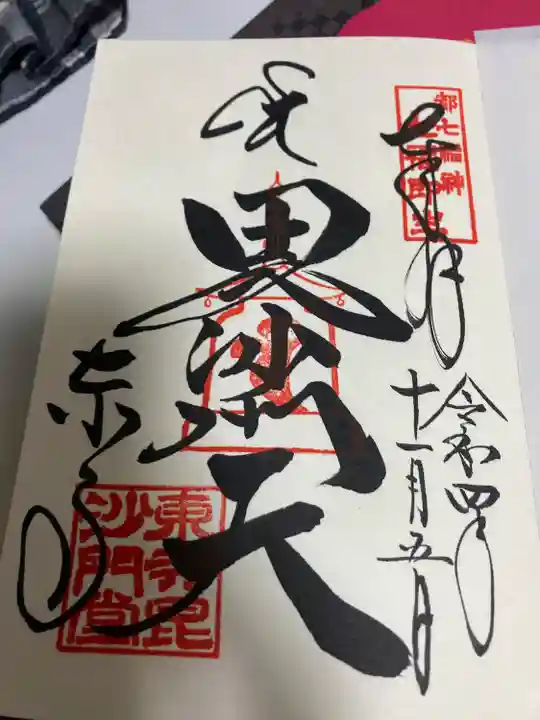 奉拝
令和四年
十一月五日
毘沙門天
東寺
東寺毘
沙門堂